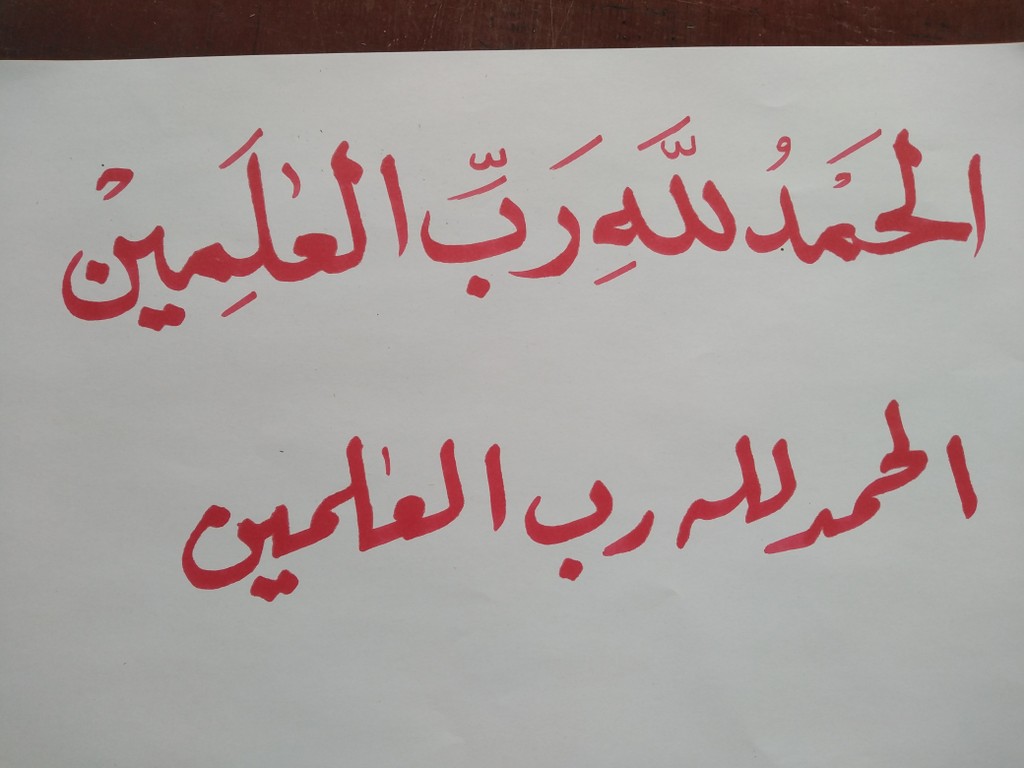 الحَمْدُ للَّهِ رَبِّ العٰلَمِينْ
الحمد لله رب العٰلمين